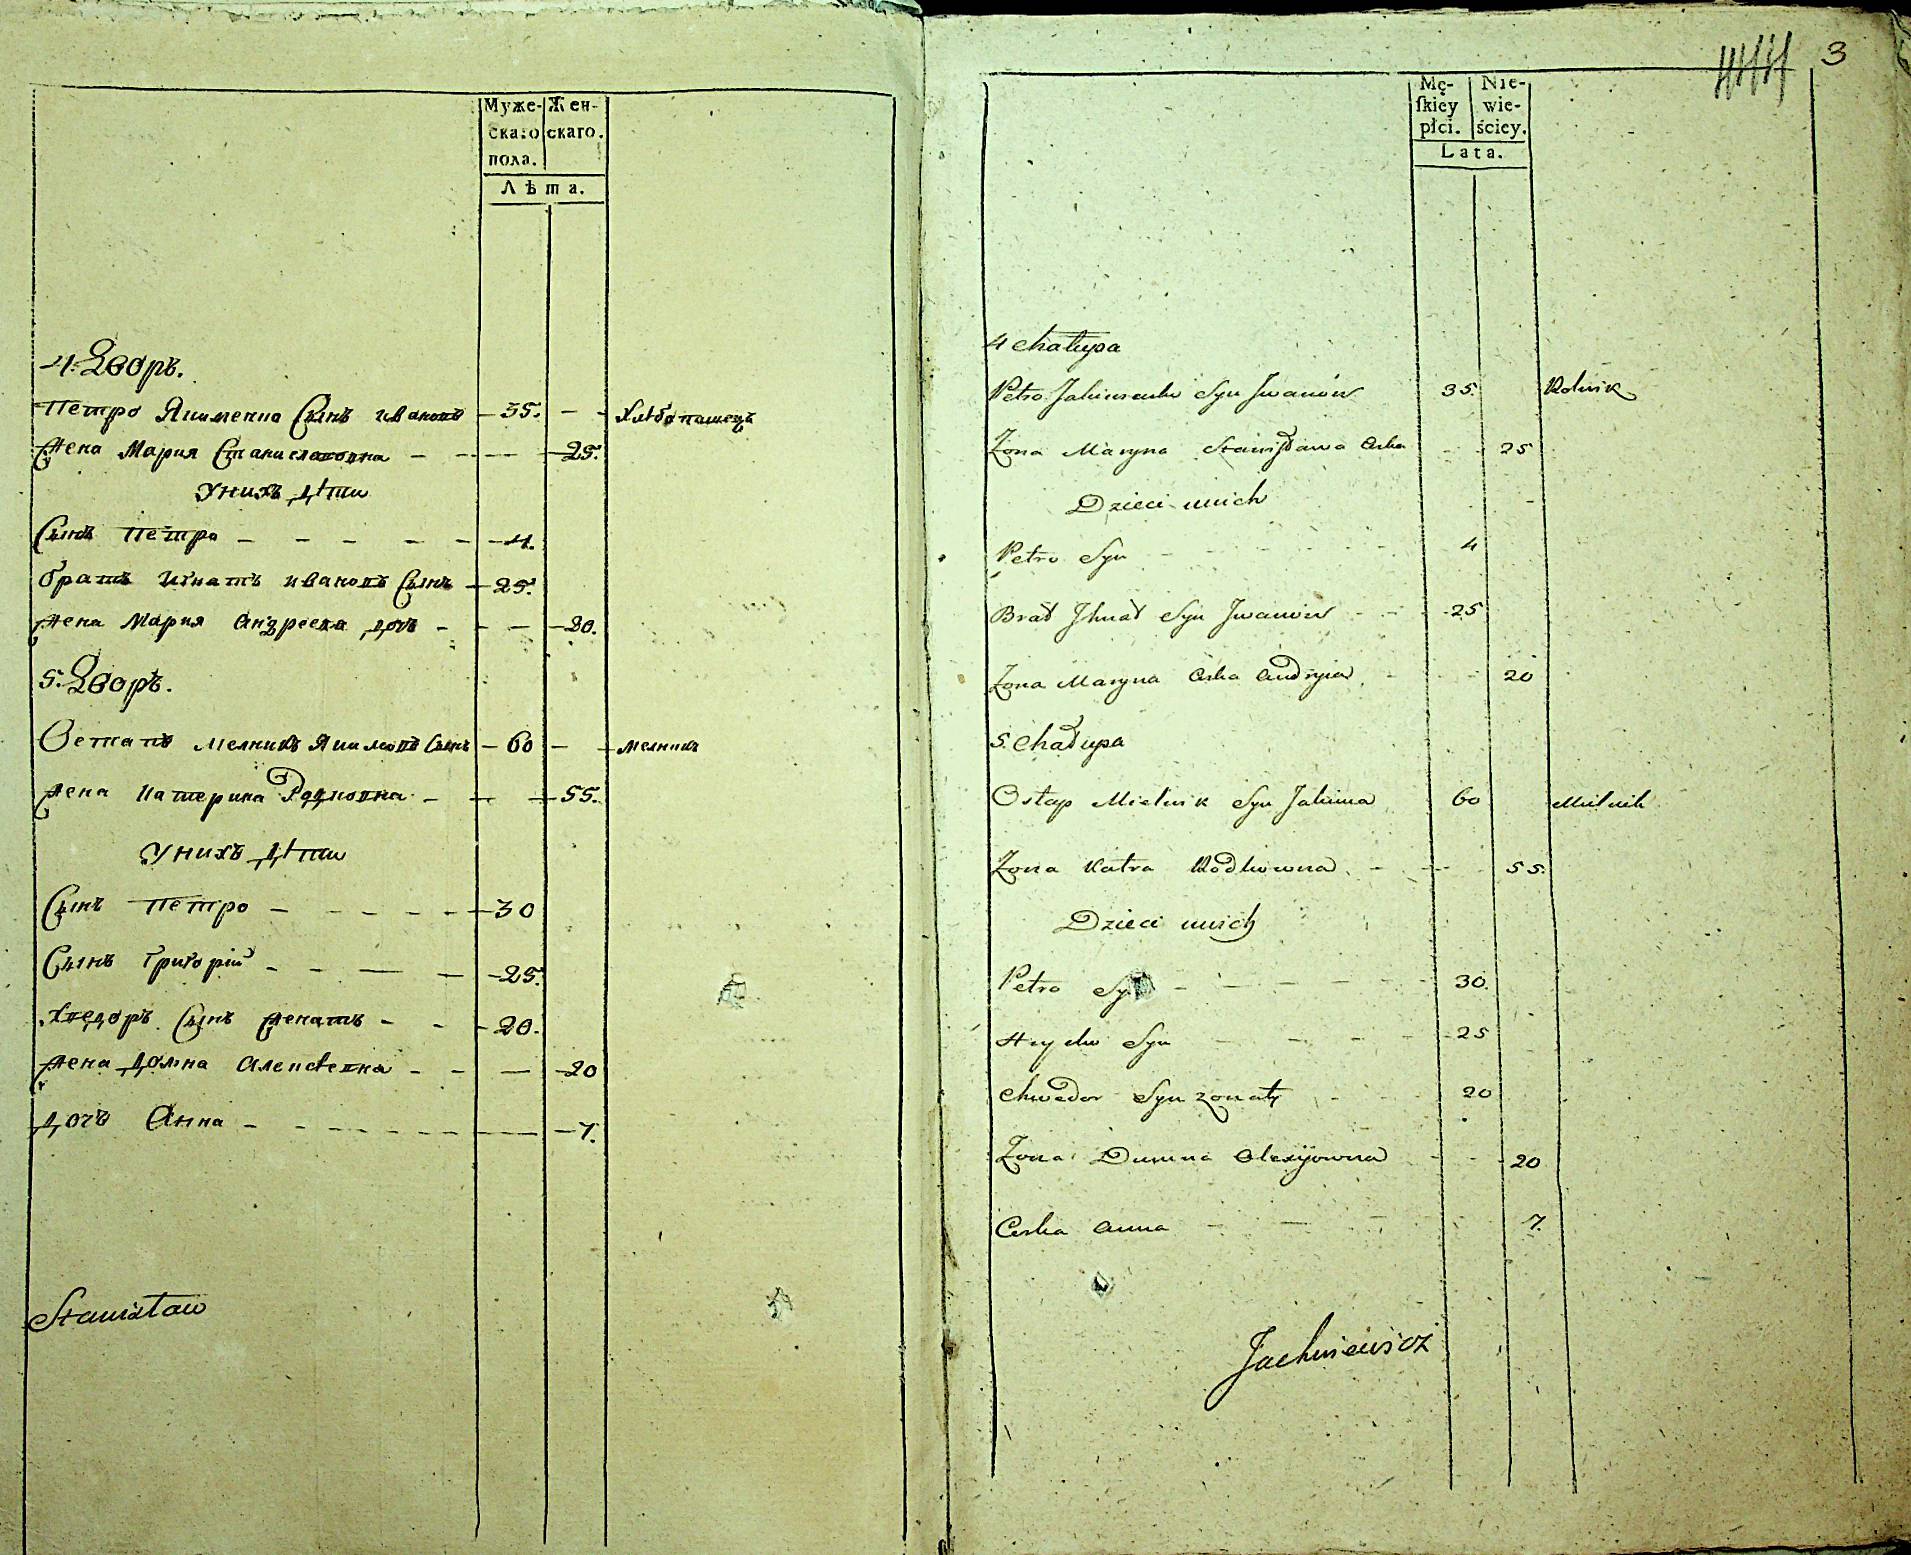 Муже- Жен-
скаго скаго.
пола.
Лѣта.
4. Дворъ.
Петро Якименко Сынъ ивановъ 35. Хлѣбопашецъ
Жена Мария Станиславовна 25.
У нихъ дѣти
Сынъ Петро 4.
братъ Игнатъ ивановъ Сынъ 25.
Жена Мария Андреева дочь 20.
5. Дворъ.
Остапъ мелникъ Якимовъ Сынъ 60 мелникъ
Жена Катерина Родковна 55.
У нихъ дѣти
Сынъ Петро 30
Сынъ Григорій 25.
Хведоръ Сынъ женатъ 20.
Жена Домна Алексѣевна 20
дочь Анна 7.
Stanisław
3
Mę- Nie-
ſkiey wie-
płci. ściey.
Lata.
4 Chałupa
Petro Jakimenko Syn Jwanów 35. Rolnik
Żona Maryna Stanisława Corka 25
Dzieci u nich
Petro Syn 4
Brat Jhnat Syn Jwanów 25
Żona Maryna Corka Andryia 20
5. Chałupa
Ostap Mielnik Syn Jakima 60 Mielnik
Żona Katra Rodkowna 55.
Dzieci u nich
Petro Syn 30.
Hryćko Syn 25
Chwedor Syn żonaty 20
Żona Dumna Olexijowna 20
Corka Anna 7.
Jachniewicz